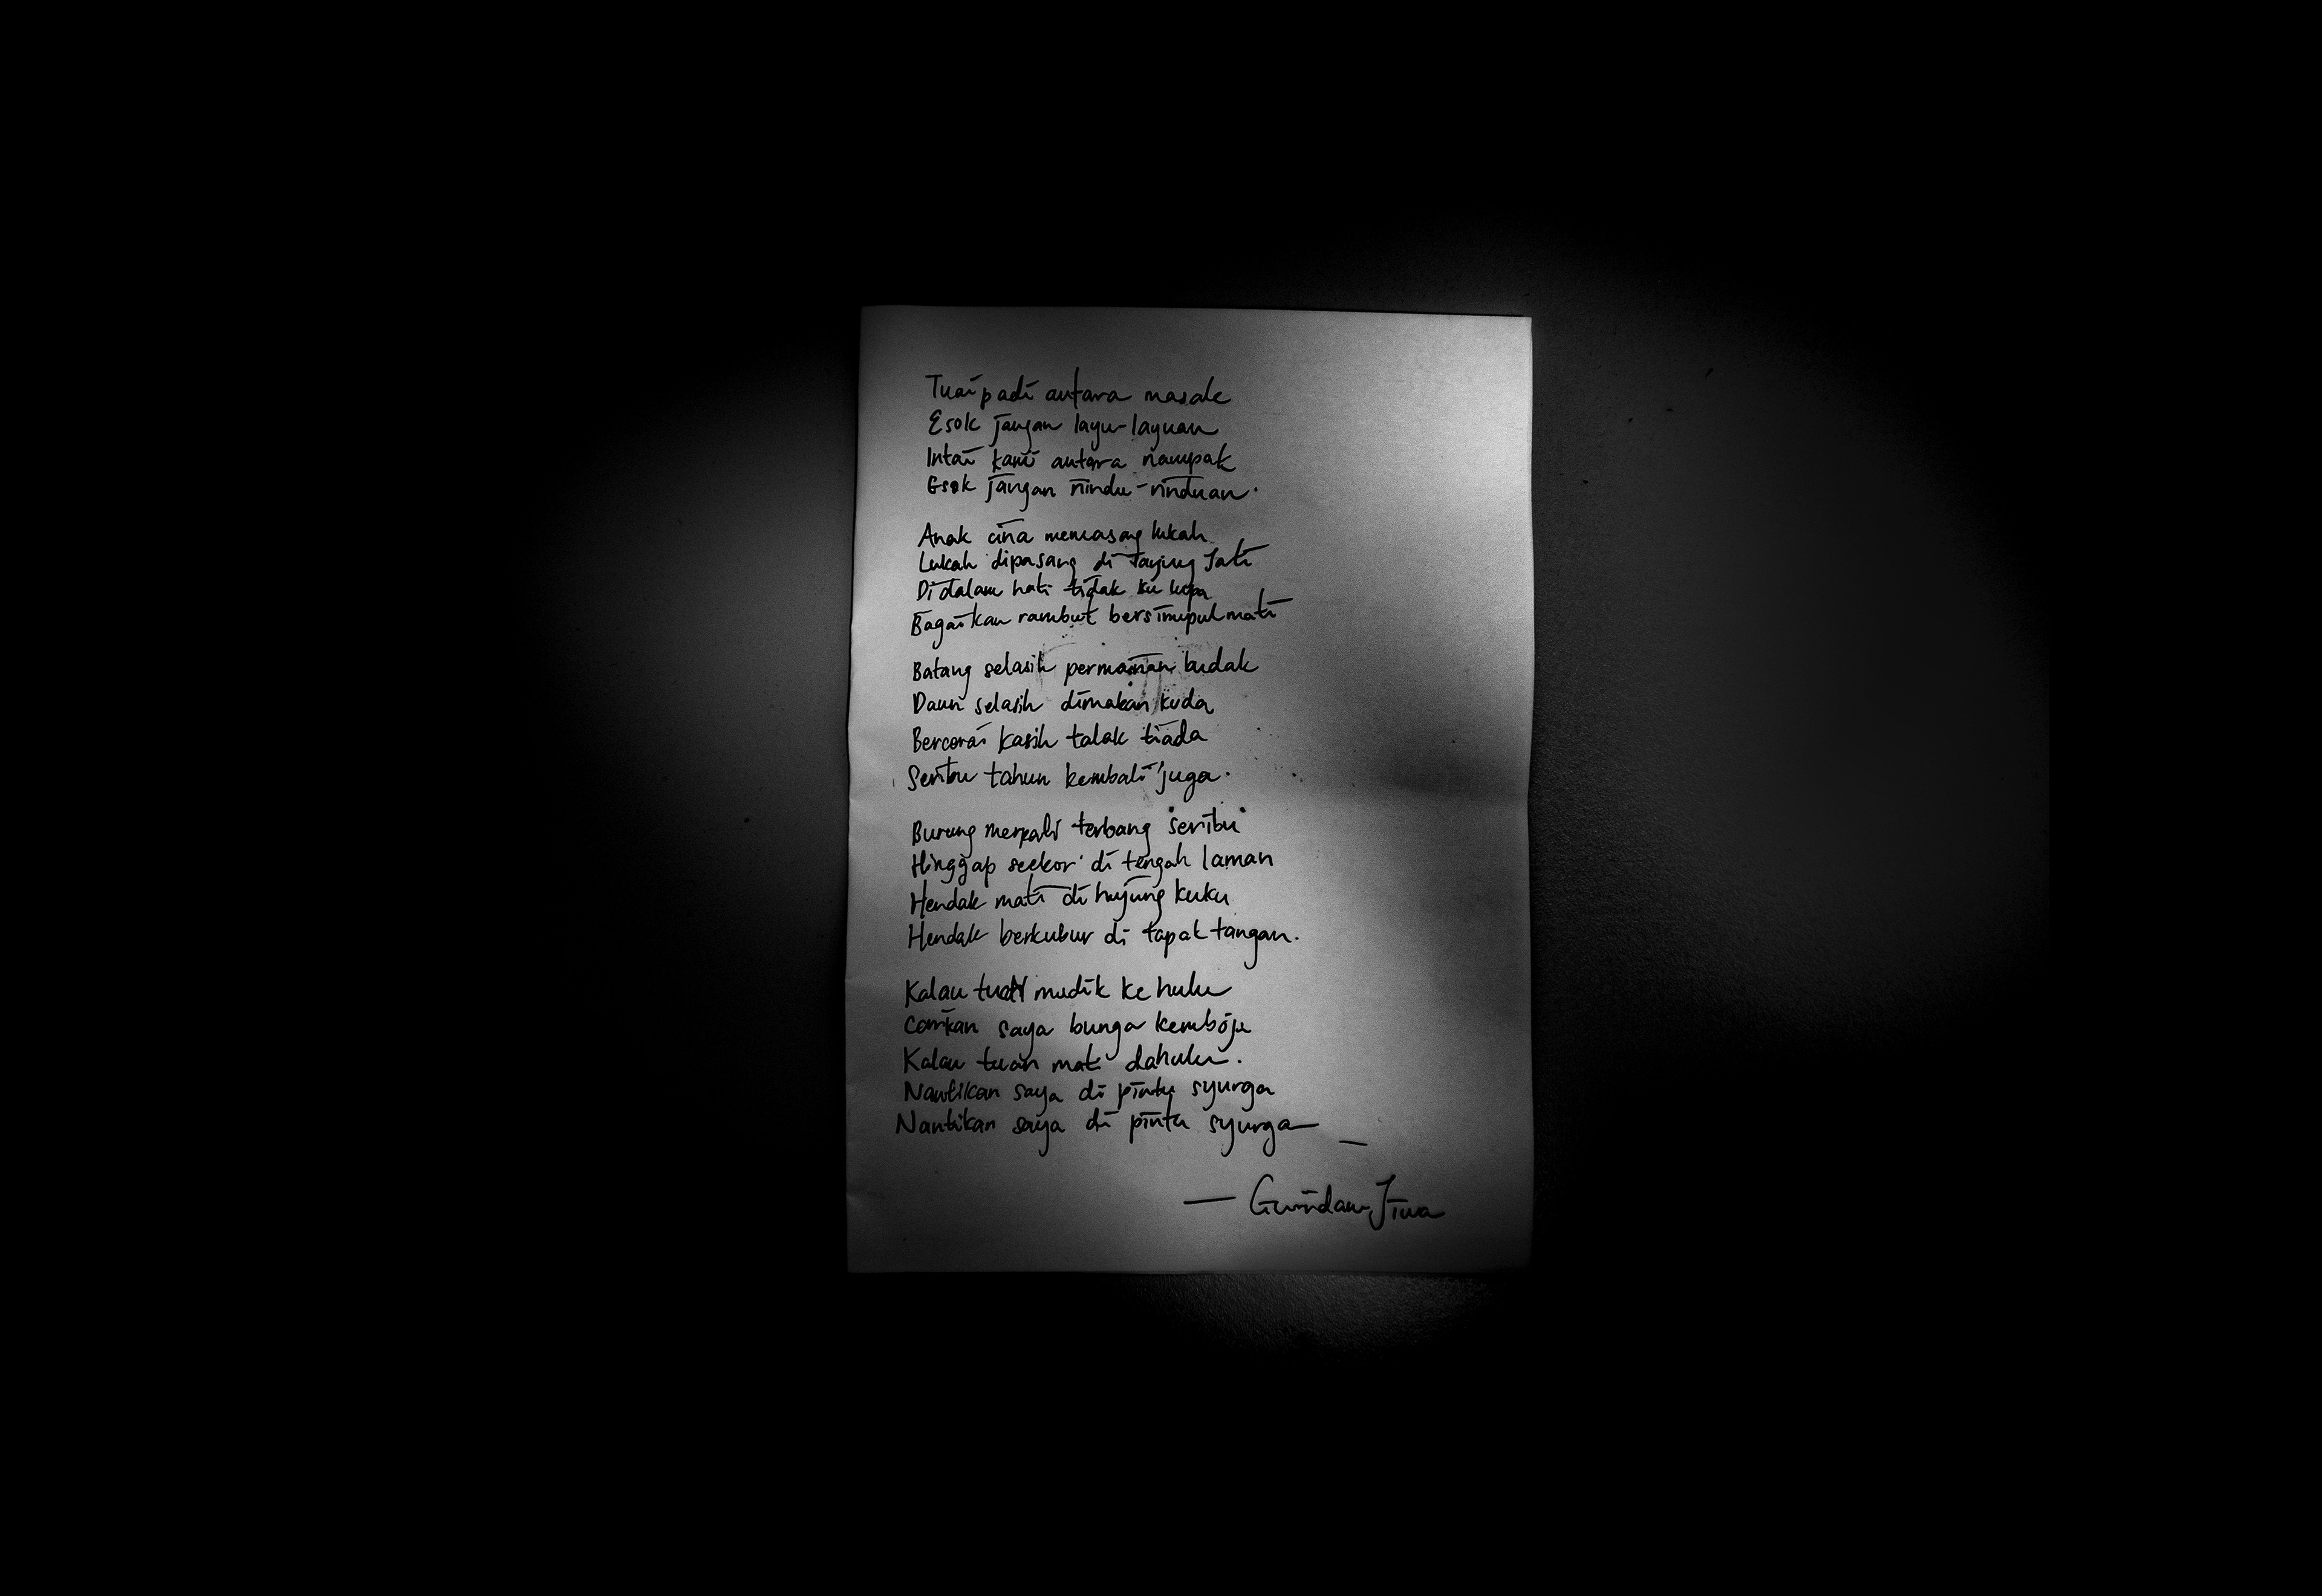 Tuai padi antara masak
Esok jangan layu-layuan
Intai kami antara nampak
Esok jangan rindu-rinduan.
Anak cina memasang lukah
Lukah dipasang di Tanjung Jati
Di dalam hati tidak ku lupa
Bagaikan rambut bersimpul mati
Batang selasih permainan budak
Daun selasih dimakan kuda
Bercerai kasih talak tiada
Seribu tahun kembali juga.
Burung merpati terbang seribu
Hinggap seekor di tengah laman
Hendak mati di hujung kuku
Hendak berkubur di tapak tangan.
Kalau tuan mudik ke hulu
Carikan saya bunga kemboja
Kalau tuan mati dahulu.
Nantikan saya di pintu syurga
Nantikan saya di pintu syurga —
— Gurindam Jiwa